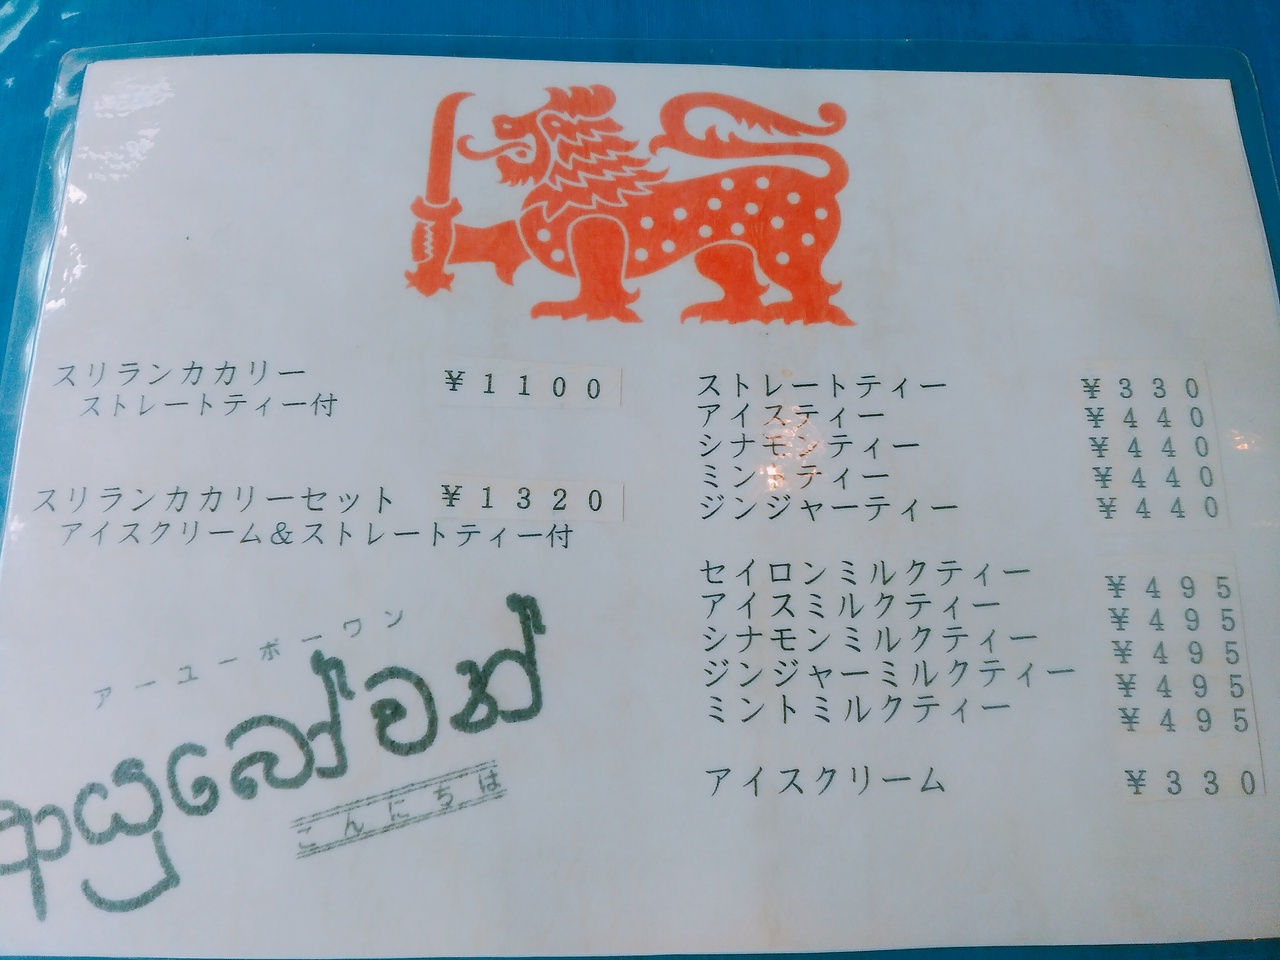 スリランカカリー ¥1100
ストレートティー付
スリランカカリーセット ¥1320
アイスクリーム&ストレートティー付
アーユーボーワン
ආයුබෝවන්
こんにちは
ストレートティー ¥330
アイスティー ¥440
シナモンティー ¥440
ミントティー ¥440
ジンジャーティー ¥440
セイロンミルクティー ¥495
アイスミルクティー ¥495
シナモンミルクティー ¥495
ジンジャーミルクティー ¥495
ミントミルクティー ¥495
アイスクリーム ¥330